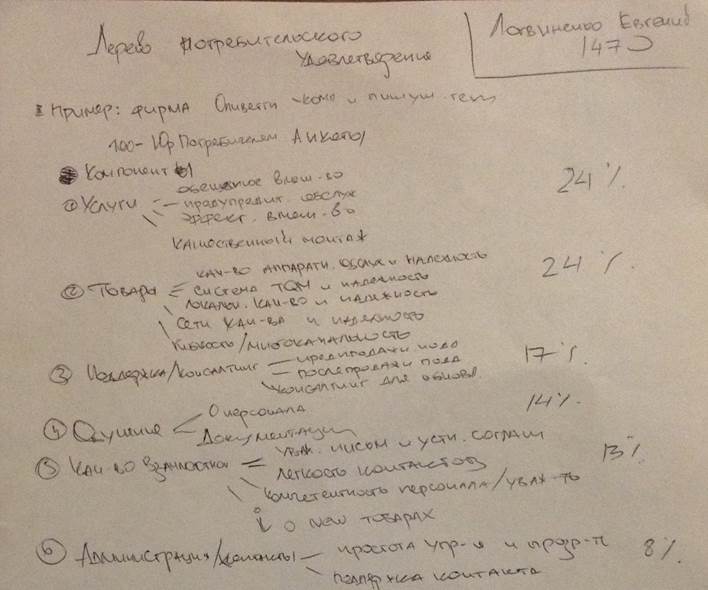 Дерево потребительского
удовлетворения
Логвиненко Евгений
147
Пример: фирма Оливетти
100 потребителей Анкеты
Компоненты
① Услуги 24%
обещанное вмеш-во
— предупредит. обслуж
эффект. вмеш-во
качественный монтаж
② Товары 24%
кач-во аппарати. обслуж и надежность
система TQM и надежность
локальн. кач-во и надежность
Сети кач-ва и надежность
гибкость/многоканальность
③ Поддержка/консалтинг 17%
— предпродажи
— послепродажи
консалтинг для
④ 14%
О персонала
Документации
⑤ Кач-во 13%
уваж. письм и устн. соглаш
легкость контактов
компетентность персонала/уваж-ть
о new товарах
⑥ Администрация/контакты — простота упр-я и прозр-ть 8%
поддержка контакта